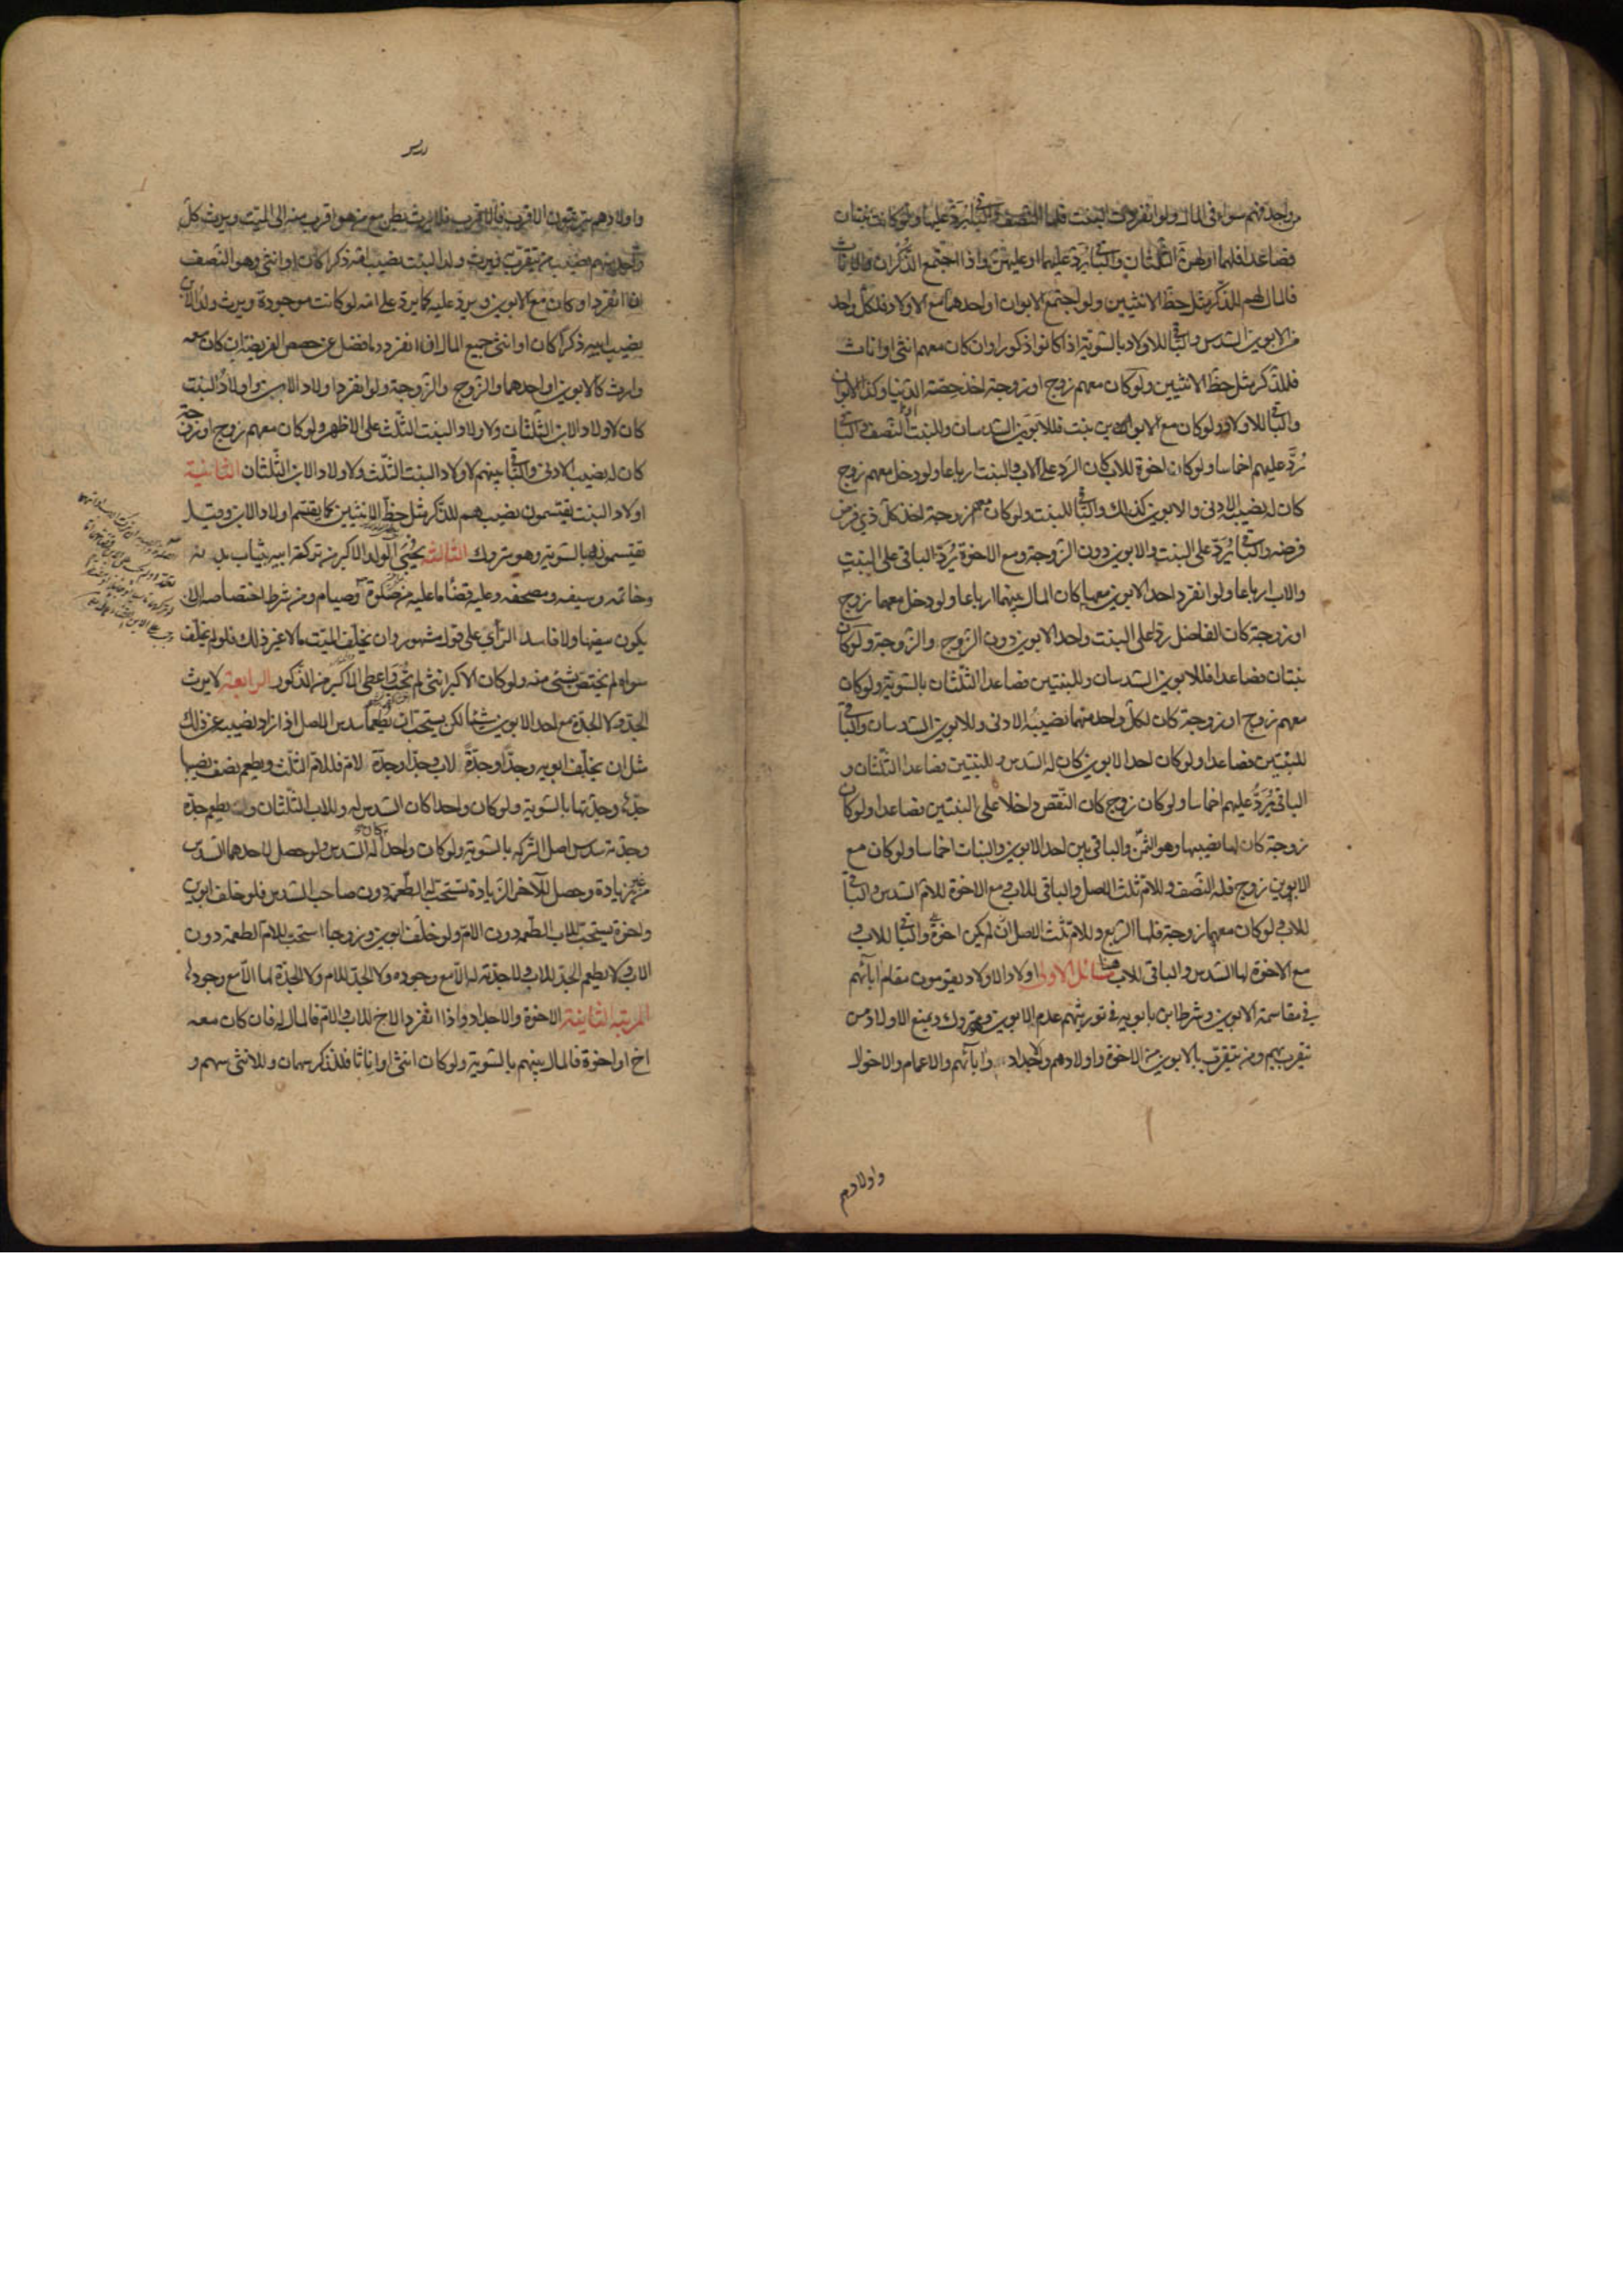 من واحد منهم سواء في المال ولو انفردت البنت فلها النصف والباقي يرد عليها ولو كانت بنتان
فصاعدا فلهما او لهن الثلثان والباقي يُردّ عليهما او عليهن واذا اجتمع الذكران والاناث
فالمال لهم للذكر مثل حظ الانثيين ولو اجتمع الابوان او احدهما مع الاولاد فلكل واحد
من الابوين السدس والباقي للاولاد بالسوية اذا كانوا ذكورا وان كان معهم انثى او اناث
فللذكر مثل حظ الانثيين ولو كان معهم زوج او زوجة اخذ حصته الدنيا وكذا الابوان
والباقي للاولاد ولو كان مع الابوين بنت فللابوين السدسان وللبنت النصف والباقي
رُدَّ عليهم اخماسا ولو كان اخوة للاب كان الرد على الاب والبنت ارباعا ولو دخل معهم زوج
كان له نصيبه الادنى والابوين كذلك والباقي للبنت ولو كان معهم زوجة اخذ كل ذي فرض
فرضه والباقي يُردّ على البنت والابوين دون الزوجة ومع الاخوة يُردّ الباقي على البنت
والاب ارباعا ولو انفرد احد الابوين معها كان المال بينهما ارباعا ولو دخل معهما زوج
او زوجة كان الفاضل ردّا على البنت واحد الابوين دون الزوج والزوجة ولو كان
بنتان فصاعدا فللابوين السدسان وللبنتين فصاعدا الثلثان بالسوية ولو كان
معهم زوج او زوجة كان لكل واحد منهما نصيبُه الادنى وللابوين السدسان والباقي
للبنتين فصاعدا ولو كان احد الابوين كان له السدس وللبنتين فصاعدا الثلثان و
الباقي يُردُّ عليهم اخماسا ولو كان زوج كان النقص داخلا على البنتين فصاعدا ولو كان
زوجة كان لها نصيبها وهو الثمن والباقي بين احد الابوين والبنات اخماسا ولو كان مع
الابوين زوج فله النصف وللام ثلث الاصل والباقي للاب ومع الاخوة للام السدس والباقي
للاب ولو كان معهما زوجة فلها الربع وللام ثلث الاصل ان لم يكن اخوة والباقي للاب و
مع الاخوة لها السدس والباقي للاب مسائل الاولى اولاد الاولاد يقومون مقام ابآئهم
في مقاسمة الابوين وشرط ابن بابويه في توريثهم عدم الابوين وهو متروك ويمنع الاولاد من
يتقرب بهم ومن يتقرب بالابوين من الاخوة واولادهم والاجداد وابآئهم والاعمام والاخوال
واولادهم
واولادهم يترتبون الاقرب فالاقرب فلا يرث بطن مع من هو اقرب منه الى الميت ويرث كل
واحد منهم نصيب من يتقرب به فيرث ولد البنت نصيب امه ذكرا كان او انثى وهو النصف
اذا انفرد او كان مع الابوين ويرد عليه كما يرد على امه لو كانت موجودة ويرث ولد الابن
نصيب ابيه ذكرا كان او انثى جميع المال اذا انفرد وما فضل عن حصص الفريضة ان كان معه
وارث كالابوين او احدهما والزوج والزوجة ولو انفرد اولاد الابن واولاد البنت
كان لاولاد الابن الثلثان ولاولاد البنت الثلث على الاظهر ولو كان معهم زوج او زوجة
كان له نصيبه الادنى والباقي بينهم لاولاد البنت الثلث ولاولاد الابن الثلثان الثانية
اولاد البنت يقتسمون نصيبهم للذكر مثل حظ الانثيين كما يقتسم اولاد الابن وقيل
يقتسمونه بالسوية وهو متروك الثالثة يحبى الولد الاكبر من تركة ابيه بثياب بدنه
وخاتمه وسيفه ومصحفه وعليه قضاء ما عليه من صلوة وصيام ومن شرط اختصاصه ان
يكون سفيها ولا فاسد الرأي على قول مشهور وان يخلف الميت مالا غير ذلك فلو لم يخلف
سواه لم يختص بشئ منه ولو كان الاكبر انثى لم تُحب واعطى الاكبر من الذكور الرابعة لا يرث
الجد ولا الجدة مع احد الابوين شيئا لكن يستحب ان يُطعما سدس الاصل اذا زاد نصيبه عن ذلك
مثل ان يخلف ابويه وجدّا وجدّة لاب وجدّا وجدّة لام فللام الثلث ويطعم نصف نصيبها
جدّه وجدّتها بالسوية ولو كان واحدا كان السدس له وللاب الثلثان و يطعم جدّه
وجدته سدس اصل التركة بالسوية ولو كان واحدا كان له السدس ولو حصل لاحدهما السدس
من غير زيادة وحصل للآخر الزيادة يستحب له الطعمة دون صاحب السدس فلو خلف ابوين
واخوة يستحب للاب الطعمة دون الام ولو خلف ابوين وزوجا استحب للام الطعمة دون
الاب ولا يطعم الجد للاب ولا جدته له الّا مع وجوده ولا الجد للام ولا الجدة لها الّا مع وجودها
المرتبة الثانية الاخوة والاجداد واذا انفرد الاخ للاب والام فالمال له فان كان معه
اخ او اخوة فالمال بينهم بالسوية ولو كان انثى او اناثا فللذكر سهمان وللانثى سهم و